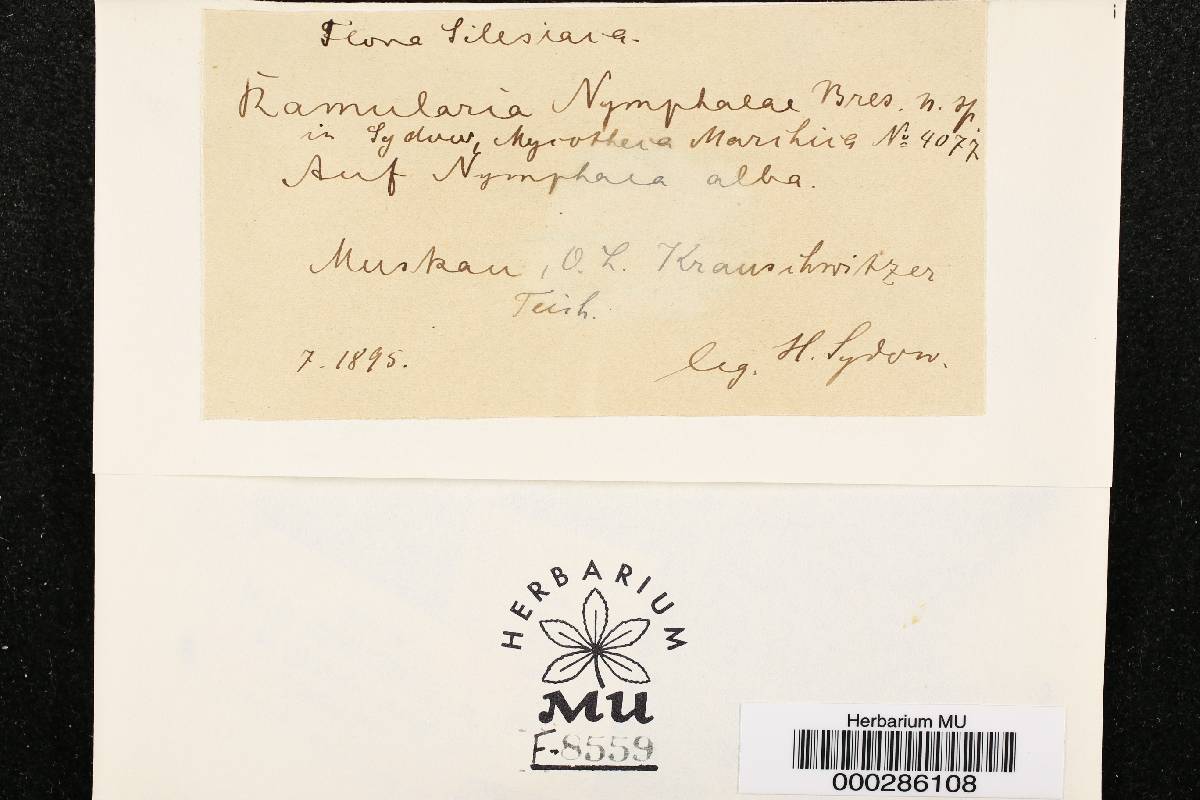 Flora Silesiaca.
Ramularia Nymphaeae Bres. n. sp.
in Sydow, Mycotheca Marchica № 4077
Auf Nymphaea alba.
Muskau, O. L. Krauschwitzer
Teich.
7. 1895.
leg. H. Sydow.
HERBARIUM
MU
F-8559
Herbarium MU
000286108